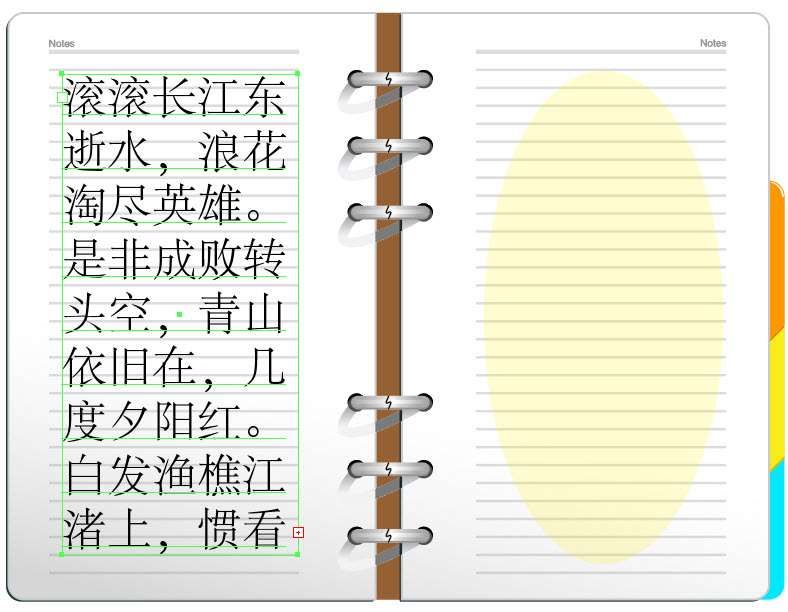 Notes
滚滚长江东
逝水，浪花
淘尽英雄。
是非成败转
头空，青山
依旧在，几
度夕阳红。
白发渔樵江
渚上，惯看
Notes